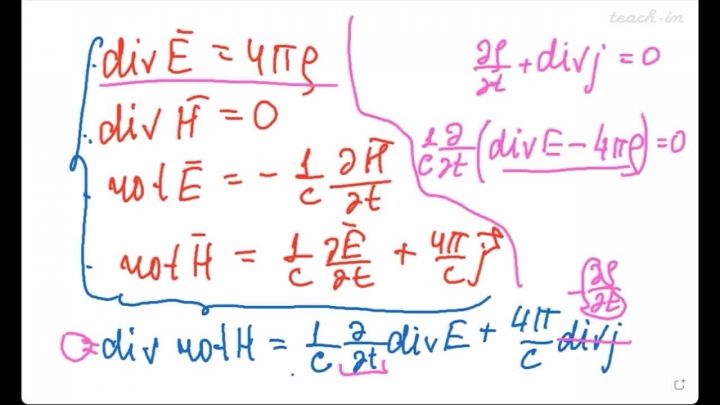 teach-in
div Ē = 4πρ
div H̄ = 0
rot Ē = - 1/c ∂H̄/∂t
rot H̄ = 1/c ∂Ē/∂t + 4π/c j̄
∂ρ/∂t + div j = 0
1/c ∂/∂t (div E - 4πρ) = 0
-∂ρ/∂t
0 = div rot H = 1/c ∂/∂t div E + 4π/c div j